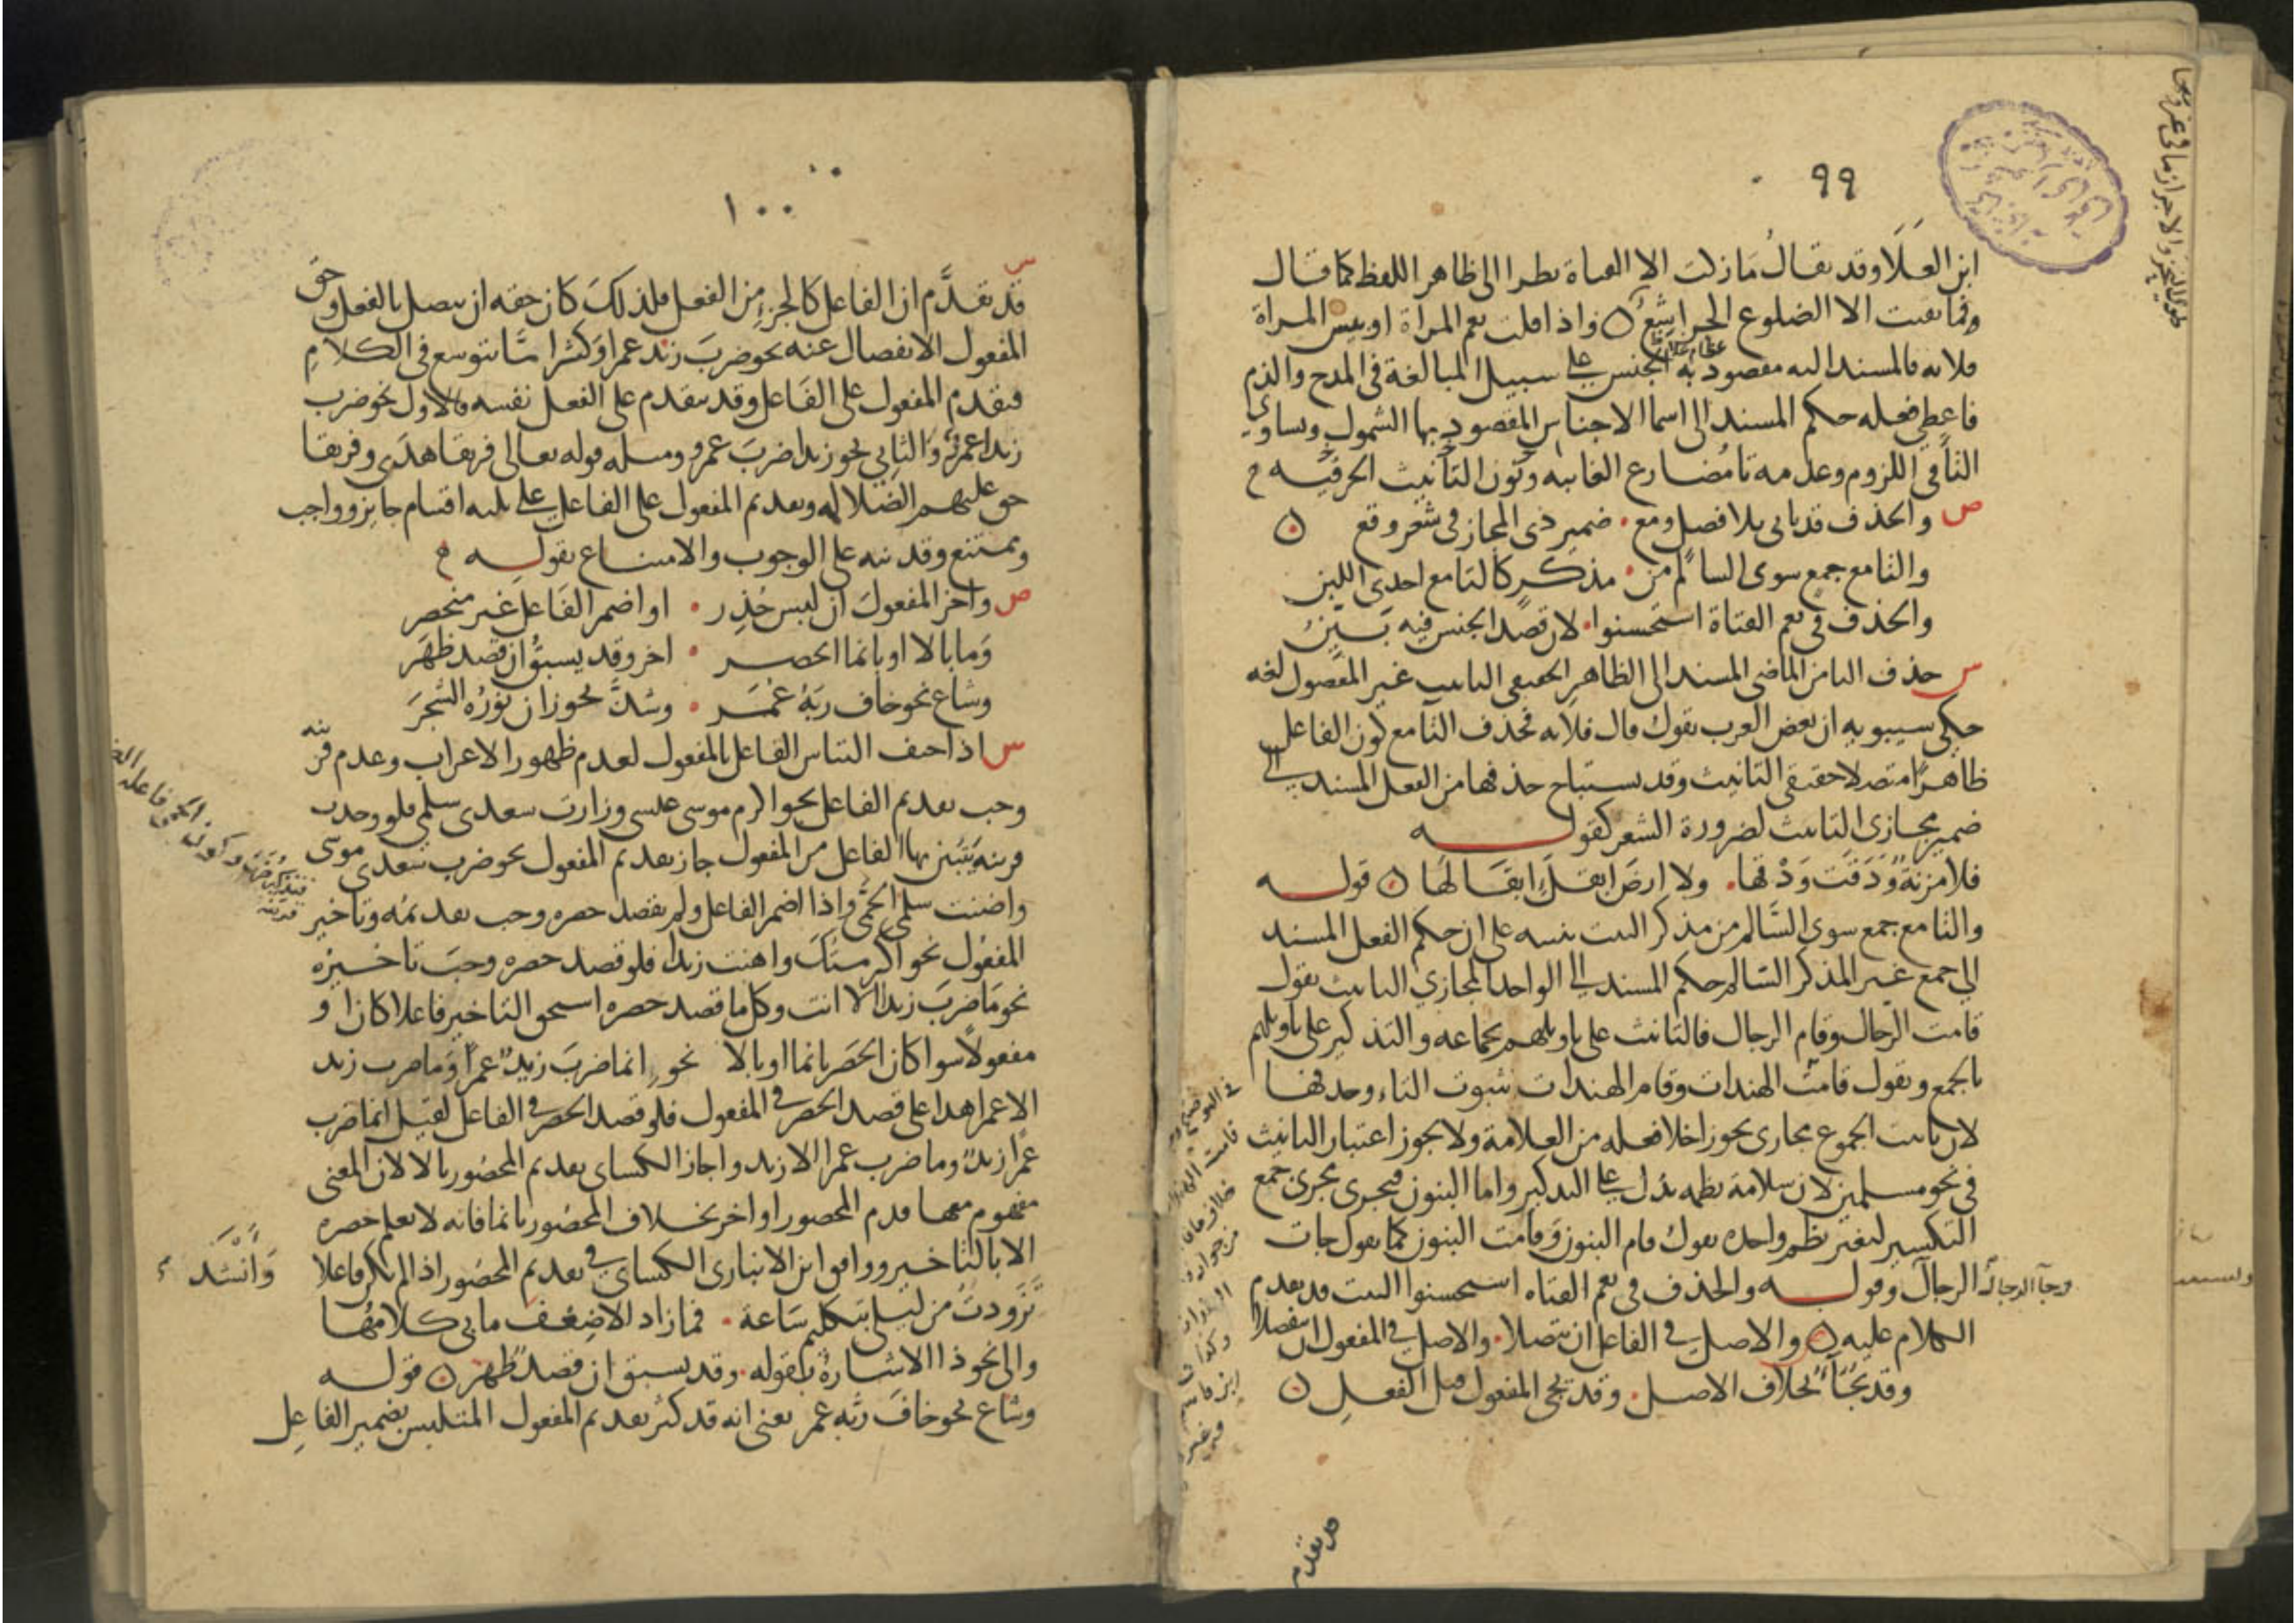 ٩٩
ابن العلا وقد يقال ما زكت الا الفتاة نظرا الى ظاهر اللفظ كما قال
وما بقيت الا الضلوع الجراشع واذا قلت نعم المراة او بيس المراة
فلانه فالمسند اليه مقصود به الجنس على سبيل المبالغة في المدح والذم
فاعطي فعله حكم المسند الى اسما الاجناس المقصود بها الشمول وتساوي
التا في اللزوم وعدمه تا مضارع الغايبه ونون التانيث الحرفيه
ص والحذف قد ياتي بلا فصل ومع ضمير ذي المجاز في شعر وقع
والتا مع جمع سوى السالم من مذكر كالتا مع احدى اللبن
والحذف في نعم الفتاة استحسنوا لان قصد الجنس فيه بين
س حذف التا من الماضي المسند الى الظاهر الحقيقي التانيث غير المفصول لغه
حكى سيبويه ان بعض العرب يقول قال فلانه فحذف التا مع كون الفاعل
ظاهرا متصلا حقيقي التانيث وقد يستباح حذفها من الفعل المسند الى
ضمير مجازي التانيث لضرورة الشعر كقوله
فلا مزنة ودقت ودقها ولا ارض ابقل ابقالها قوله
والتا مع جمع سوى السالم من مذكر البيت تنبيه على ان حكم الفعل المسند
الى جمع غير المذكر السالم حكم المسند الى الواحد المجازي التانيث تقول
قامت الرجال وقام الرجال فالتانيث على تاويلهم بجماعه والتذكير على تاويلهم
بالجمع وتقول قامت الهندات وقام الهندات بثبوت التاء وحذفها
لان تانيث الجموع مجازي يجوز اخلا فعله من العلامة ولا يجوز اعتبار التانيث
في نحو مسلمين لان سلامة نظمه تدل على التذكير واما البنون فيجري مجرى جمع
التكسير لتغير نظم واحده تقول قام البنون وقامت البنون كما تقول جات
الرجال وقوله والحذف في نعم الفتاه استحسنوا البيت قد تقدم
وجآ الرجال
الكلام عليه والاصل في الفاعل ان يتصلا والاصل في المفعول ان ينفصلا
وقد يجآء بخلاف الاصل وقد يجي المفعول قبل الفعل
قد تقدم
١٠٠
س
قد تقدم ان الفاعل كالجزء من الفعل فلذلك كان حقه ان يتصل بالفعل وحق
المفعول الانفصال عنه نحو ضرب زيد عمرا وكثيرا ما يتوسع في الكلام
فيقدم المفعول على الفاعل وقد يقدم على الفعل نفسه فالاول نحو ضرب
زيدا عمرو والثاني نحو زيدا ضرب عمرو ومثله قوله تعالى فريقا هدى وفريقا
حق عليهم الضلاله وتقديم المفعول على الفاعل على ثلثه اقسام جايز وواجب
وممتنع وقد نبه على الوجوب والامتناع بقوله
ص واخر المفعول ان لبس حذر او اضمر الفاعل غير منحصر
وما بالا او بانما انحصر اخر وقد يسبق ان قصد ظهر
وشاع نحو خاف ربه عمر وشذ نحو زان نوره الشجر
س اذا خيف التباس الفاعل بالمفعول لعدم ظهور الاعراب وعدم قرينه
وجب تقديم الفاعل نحو اكرم موسى عيسى وزارت سعدى سلمى فلو وجدت
قرينه يتبين بها الفاعل من المفعول جاز تقديم المفعول نحو ضرب سعدى موسى
واضنت سلمى الحمى واذا اضمر الفاعل ولم يقصد حصره وجب تقديمه وتاخير
المفعول نحو اكرمتك واهنت زيدا فلو قصد حصره وجب تاخيره
نحو ما ضرب زيدا الا انت وكل ما قصد حصره استحق التاخير فاعلا كان او
مفعولا سوا كان الحصر بانما او بالا نحو انما ضرب زيد عمرا وما ضرب زيد
الا عمرا هذا على قصد الحصر في المفعول فلو قصد الحصر في الفاعل لقيل انما ضرب
عمرا زيد وما ضرب عمرا الا زيد واجاز الكساي تقديم المحصور بالا لان المعنى
مفهوم معها قدم المحصور او اخر بخلاف المحصور بانما فانه لا يعلم حصره
الا بالتاخير ووافق ابن الانباري الكساي في تقديم المحصور اذا لم يكن فاعلا
وانشد
تزودت من ليلى بتكليم ساعة فما زاد الا ضعف ما بي كلامها
والى نحو ذا الاشارة بقوله وقد يسبق ان قصد ظهر قوله
وشاع نحو خاف ربه عمر يعني انه قد كثر تقديم المفعول المتلبس بضمير الفاعل